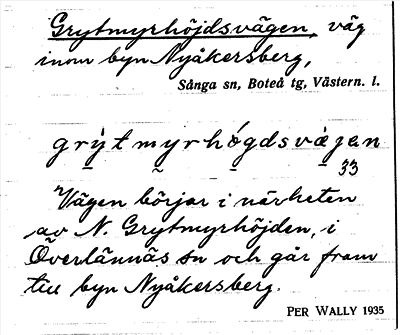 Grytmyrhöjdsvägen, väg
inom byn Nyåkersberg,
Sånga sn, Boteå tg, Västern. l.
grỳtmyrhǿgdsvägen
33
Vägen börjar i närheten
av N. Grytmyrhöjden, i
Överlännäs sn och går fram
till byn Nyåkersberg.
PER WALLY 1935